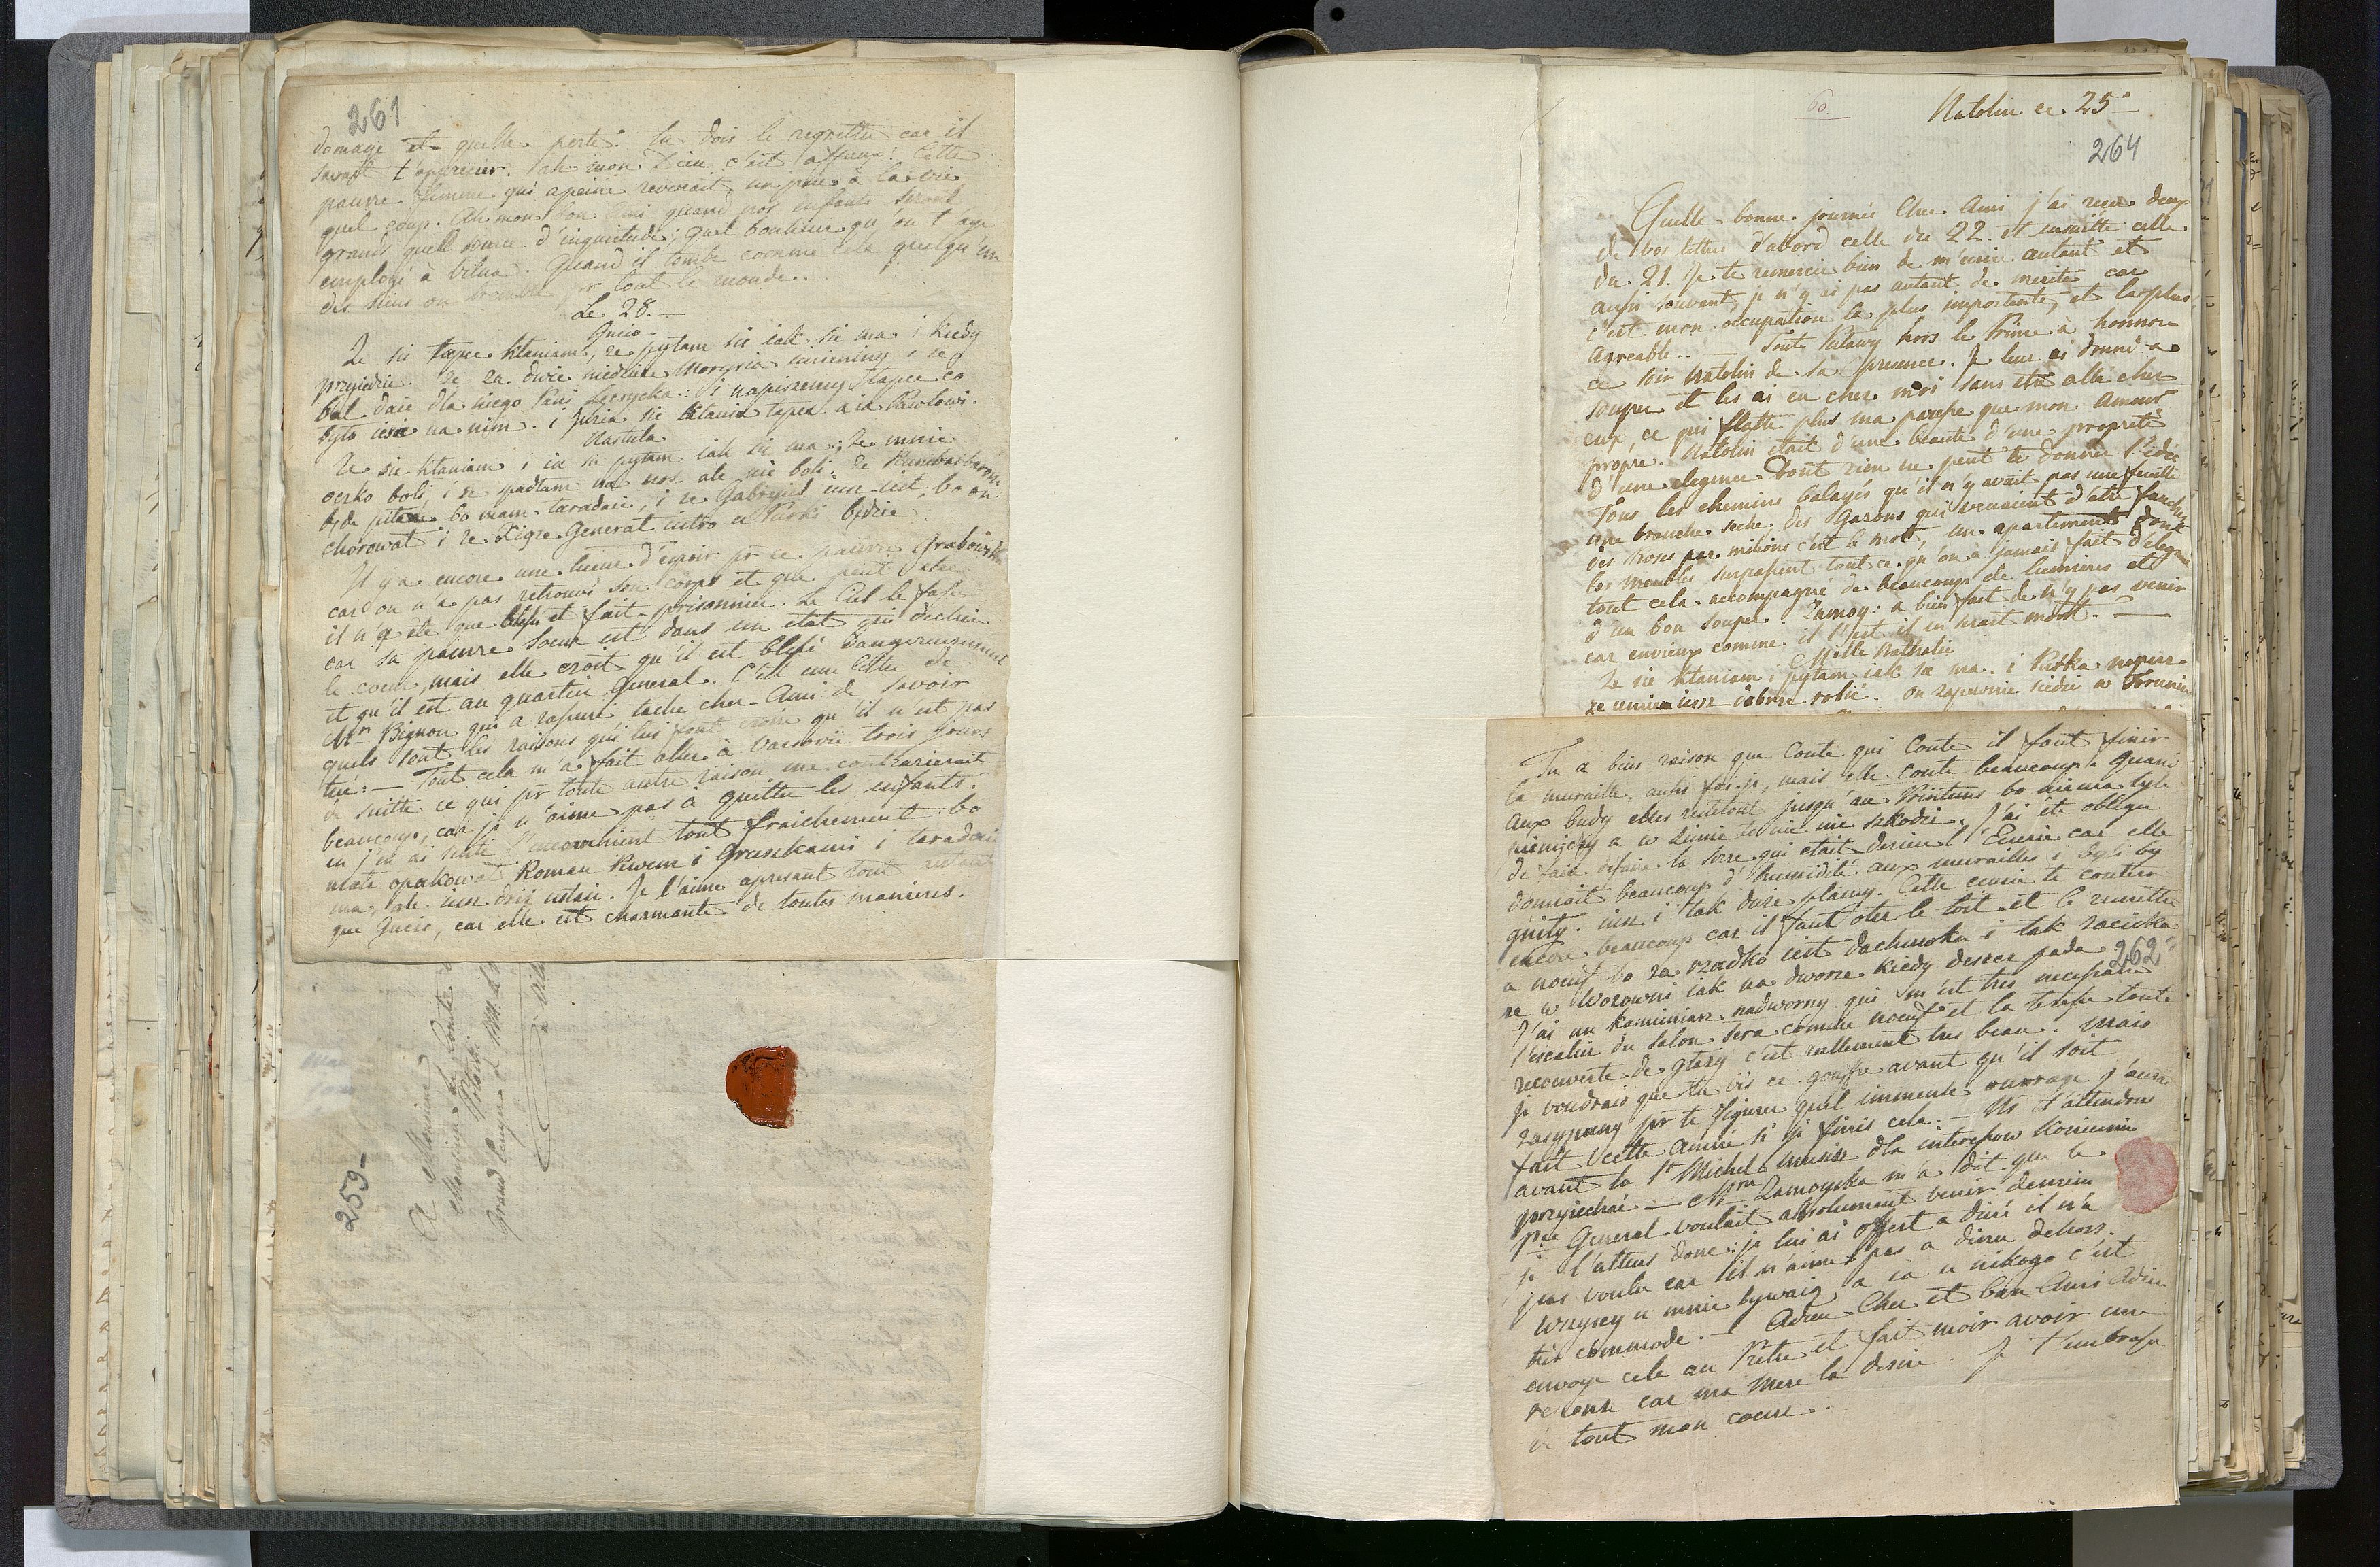 261
domage et quelle perte: tu dois le regretter car il
savait t'apprecier. Ah mon Dieu c'est affreux! Cette
pauvre femme qui apeine revenait un peu à la vie
quel coup. Ah mon bon Ami quand nos enfants seront
grands quelle source d'inquietude; quel bonheur qu'on t'aye
employé à Vilna. Quand il tombe comme cela quelqu'un
des siens on tremble pr tout le monde.
Le 28.—
Gucio
Ze sie tapce kłaniam, ze pytam sie iak sie ma i kiedy
przyiedzie. Ze za dwie niedziele Morysia imieniny i ze
bal daie dla niego Pani Łęczycka: i napiszemy Tapce co
było iesc na nim. i Juzia sie kłania tapce a ia Pawłowi.
Nastula
Ze sie kłaniam i ia sie pytam iak sie ma; ze mnie
oczko boli, i ze spadłam na nos. ale nie boli: ze Rumbarbarum
będe piła bo mam taradaie, i ze Gabryiel iusz iest, bo on
chorował i ze Xiąze Generał iutro u Purki będzie.
Il y a encore une lueur d'espoir pr ce pauvre Grabowski
car on n'a pas retrouvé son corps et que peut etre
il n'a été que blessé et fait prisonnier. Le Ciel le fasse
car sa pauvre Soeur est dans un état qui dechire
le coeur, mais elle croit qu'il est blessé dangereusement
et qu'il est au quartier General. C'est une lettre de
Mr. Bignon qui a rassuré tache cher Ami de savoir
quels sont les raisons qui lui font croire qu'il n'est pas
tué:— Tout cela m'a fait aller à Varsovie trois jours
de suitte ce qui pr toute autre raison me contrarierait
beaucoup, car je n'aime pas à quitter les enfants:
en j'en ai senti l'inconvenient tout fraichement bo
małe opakował Roman Piwem i Gruszkami i taradaie
ma, ale iusz dziś ustaie. Je l'aime apresant tout autant
que Gucio, car elle est charmante de toutes manieres.
259-
A Monsieur
Monsieur le Comte
Potocki
Grand Camp
à Vil
60.
Natolin ce 25e
264
Quelle bonne journée Cher Ami j'ai reçu deux
de vos lettres d'abord celle du 22. et ensuitte celle
du 21. Je te remercie bien de m'ecrire autant et
aussi souvent, je n'y ai pas autant de merite car
c'est mon occupation la plus importante, et la plus
agreable..— Tout Puławy hors le Prince à honnoré
ce soir Natolin de sa presence. Je leur ai donné a
souper et les ai eu chez moi sans etre allé chez
eux, ce qui flatte plus ma paresse que mon Amour
propre. Natolin était d'une beauté d'une propreté
d'une elegance dont rien ne peut te donner l'idée
Tous les chemins balayés qu'il n'y avait pas une feuille
une branche seche. des Gazons qui venaient d'etre fauchés
des roses par milions c'est le mot, un apartement dont
les meubles surpassent tout ce qu'on a jamais fait d'elegant
tout cela accompagné de beaucoup de lumieres et
d'un bon souper. Zamoy: a bien fait de n'y pas venir
car envieux comme il l'est il en serait mort.—
Melle Nathalie
Ze sie kłaniam, pytam iak sie ma. i Purka napisze
ze umiem iusz dobrze robić. On zapewnie siedzi w Toruniu
Tu a bien raison que Coute qui Coute il faut finir
la muraille, aussi fai-je, mais elle coute beaucoup. Quand
aux Budy elles resteront jusqu'au Printems bo niema tyle
pieniędzy a w zimie to nic nie szkodzi. J'ai été obligé
de faire defaire la serre qui etait derriere l'Ecurie car elle
donnait beaucoup d'humidité aux murailles i były by
gniły. iusz i tak duze plamy. Cette ecurie te coutera
encore beaucoup car il faut oter le toit et le remettre
a noeuf bo za rzadko iest dachuwka i tak zacieka
ze w Wozowni iak na dworze kiedy deszcz pada. 262
J'ai un kamieniarz nadworny qui m'est très necessaire
l'escalier du Salon sera comme noeuf et la terrasse toute
recouverte de głazy c'est reellement tres beau. Mais
je voudrais que tu vis ce gouffre avant qu'il soit
zasypany pr te figurer quel immense ouvrage j'aurai
fait cette Année si je finis cela.— Ns t'attendons
avant la St Michel musisz dla interessow koniecznie
przyiechać — Mme Zamoyska m'a dit que le
Pce General voulait absolument venir demain
je l'attens donc; je lui ai offert a diné il n'a
pas voulu car il n'aime pas a diner dehors.
Wszyscy u mnie bywaią a ia u nikogo c'est
très commode.— Adieu Cher et bon Ami Adieu
envoye cela au Pretre et fait moir avoir une
reponse car ma Mere la desire. Je t'embrasse
de tout mon coeur.